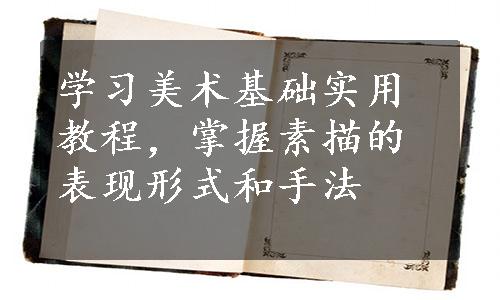 学习美术基础实用
教程，掌握素描的
表现形式和手法